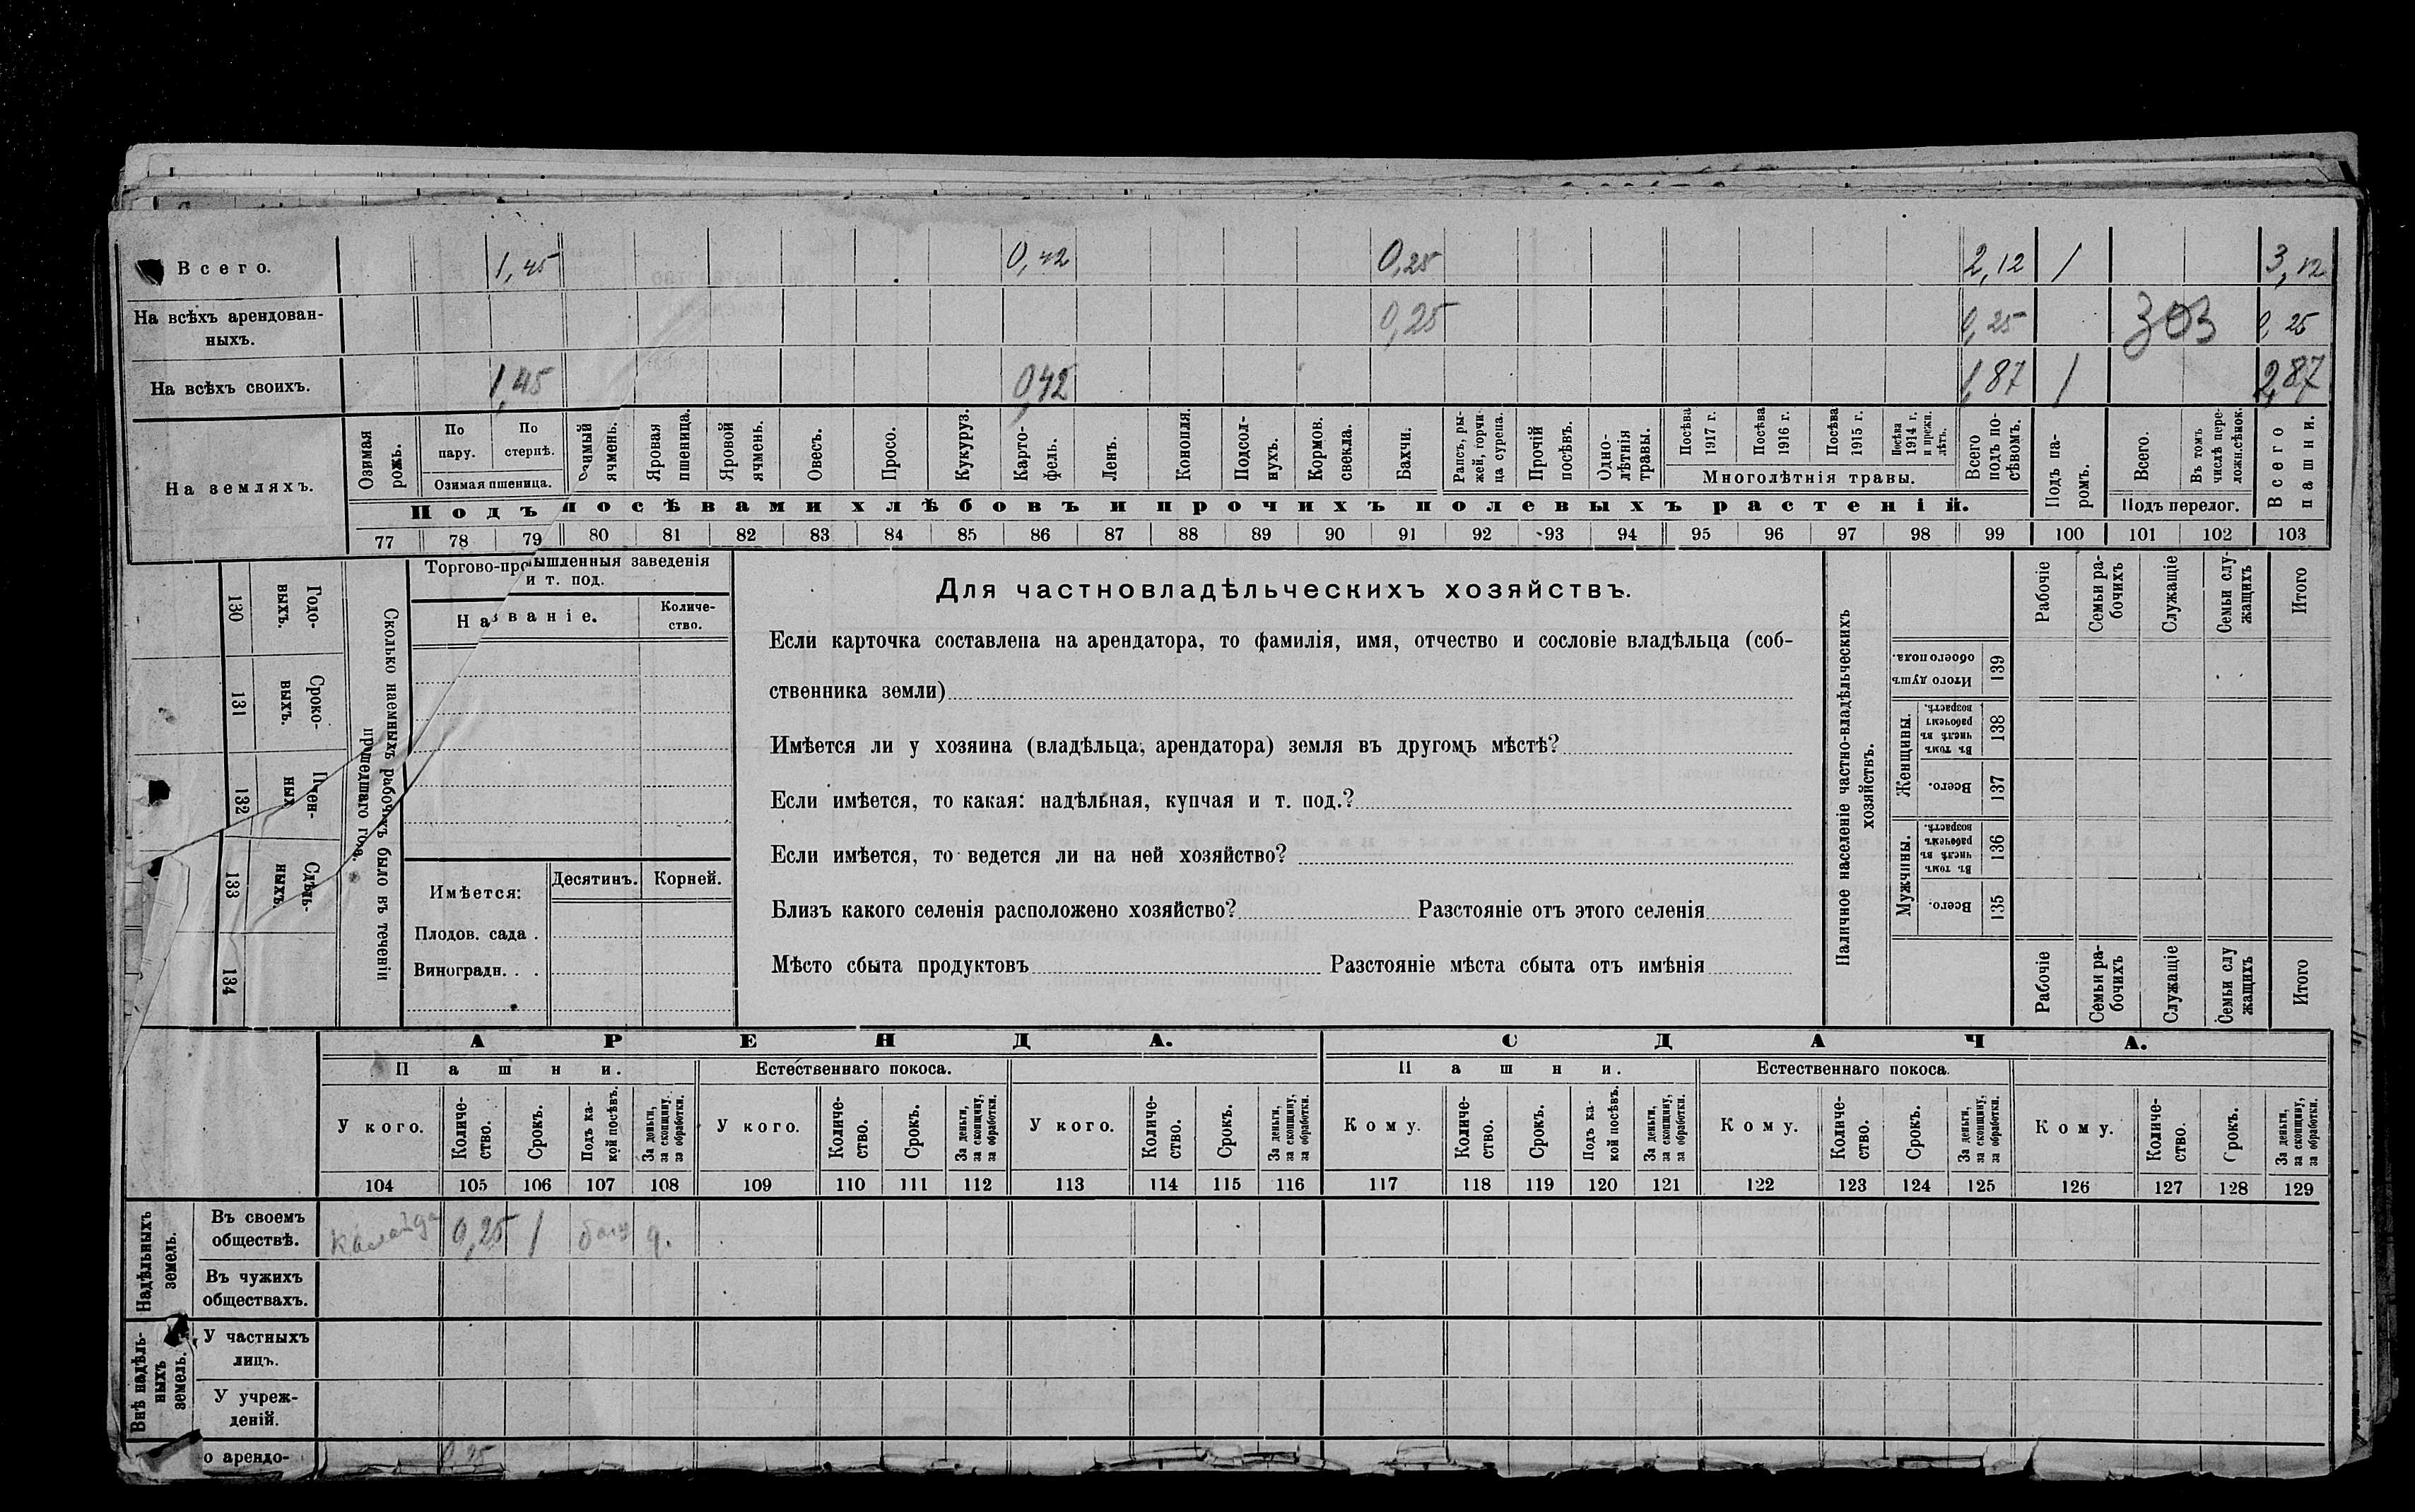 Всего. 1,45 0,42 0,25 2,12 1 3,12
На всѣхъ арендован-
ныхъ. 0,25 0,25 303 0,25
На всѣхъ своихъ. 1,45 0,42 1,87 1 2,87
На земляхъ.
Озимая рожь.
По пару.
По стернѣ.
Озимая пшеница.
Озимый ячмень.
Яровая пшеница.
Яровой ячмень.
Овесъ.
Просо.
Кукуруз.
Карто-
фель.
Ленъ.
Конопля.
Подсол-
нухъ.
Кормов. свекла.
Бахчи.
Рапсъ, ры-
жей, горчи-
ца сурепа.
Прочій посѣвъ.
Одно-
лѣтнія травы.
Посѣва 1917 г.
Посѣва 1916 г.
Посѣва 1915 г.
Посѣва 1914 г. и прежн. лѣтъ.
Многолѣтнія травы.
Всего подъ по-
сѣвомъ.
Подъ па-
ромъ.
Всего.
Въ томъ числѣ пере-
ложн. сѣнок.
Подъ перелог.
Всего пашни.
Подъ посѣвами хлѣбовъ и прочихъ полевыхъ растеній.
77 78 79 80 81 82 83 84 85 86 87 88 89 90 91 92 93 94 95 96 97 98 99 100 101 102 103
130 Годо-
выхъ.
131 Сроко-
выхъ.
132
133 Сдѣль-
ныхъ.
134
Сколько наемныхъ рабочихъ было въ теченіи
прошедшаго года.
Торгово-промышленныя заведенія
и т. под.
Названіе.
Количе-
ство.
Имѣется:
Десятинъ. Корней.
Плодов. сада .
Виноградн. . .
Для частновладѣльческихъ хозяйствъ.
Если карточка составлена на арендатора, то фамилія, имя, отчество и сословіе владѣльца (соб-
ственника земли)
Имѣется ли у хозяина (владѣльца, арендатора) земля въ другомъ мѣстѣ?
Если имѣется, то какая: надѣльная, купчая и т. под.?
Если имѣется, то ведется ли на ней хозяйство?
Близъ какого селенія расположено хозяйство? Разстояніе отъ этого селенія
Мѣсто сбыта продуктовъ Разстояніе мѣста сбыта отъ имѣнія
Наличное населеніе частно-владѣльческихъ
хозяйствъ.
Рабочіе
Семьи ра-
бочихъ
Служащіе
Семьи слу-
жащихъ
Итого
Итого душъ обоего пола. 139
Женщины.
Въ томъ числѣ въ рабочемъ возрастѣ. 138
Всего. 137
Мужчины.
Въ томъ числѣ въ рабочемъ возрастѣ. 136
Всего. 135
Рабочіе
Семьи ра-
бочихъ
Служащіе
Семьи слу
жащихъ
Итого
АРЕНДА. СДАЧА.
Пашни. Естественнаго покоса. Пашни. Естественнаго покоса.
У кого.
Количе-
ство.
Срокъ.
Подъ ка-
кой посѣвъ.
За деньги,
за скопщину,
за обработки.
У кого.
Количе-
ство.
Срокъ.
За деньги,
за скопщину,
за обработки.
У кого.
Количе-
ство.
Срокъ.
За деньги,
за скопщину,
за обработки.
Кому.
Количе-
ство.
Срокъ.
Подъ ка-
кой посѣвъ.
За деньги,
за скопщину,
за обработки.
Кому.
Количе-
ство.
Срокъ.
За деньги,
за скопщину,
за обработки.
Кому.
Количе-
ство.
Срокъ.
За деньги,
за скопщину,
за обработки.
104 105 106 107 108 109 110 111 112 113 114 115 116 117 118 119 120 121 122 123 124 125 126 127 128 129
Надѣльныхъ
земель.
Въ своемъ
обществѣ. 0,25 1 д.
Въ чужихъ
обществахъ.
Внѣ надѣль-
ныхъ
земель.
У частныхъ
лицъ.
У учреж-
деній.
о арендо- 0,25